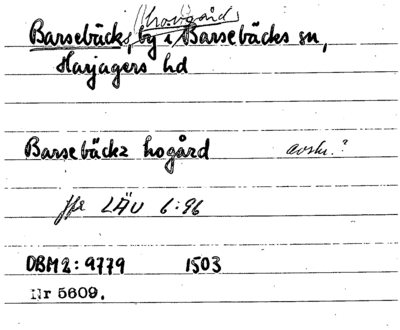 (hovgård)
Barsebäcks, by i Barsebäcks sn,
Harjagers hd
Barsebäckz hogård avskr.?
jfr LÄU 6:96
DBM 2: 9779 1503
Nr 5609.